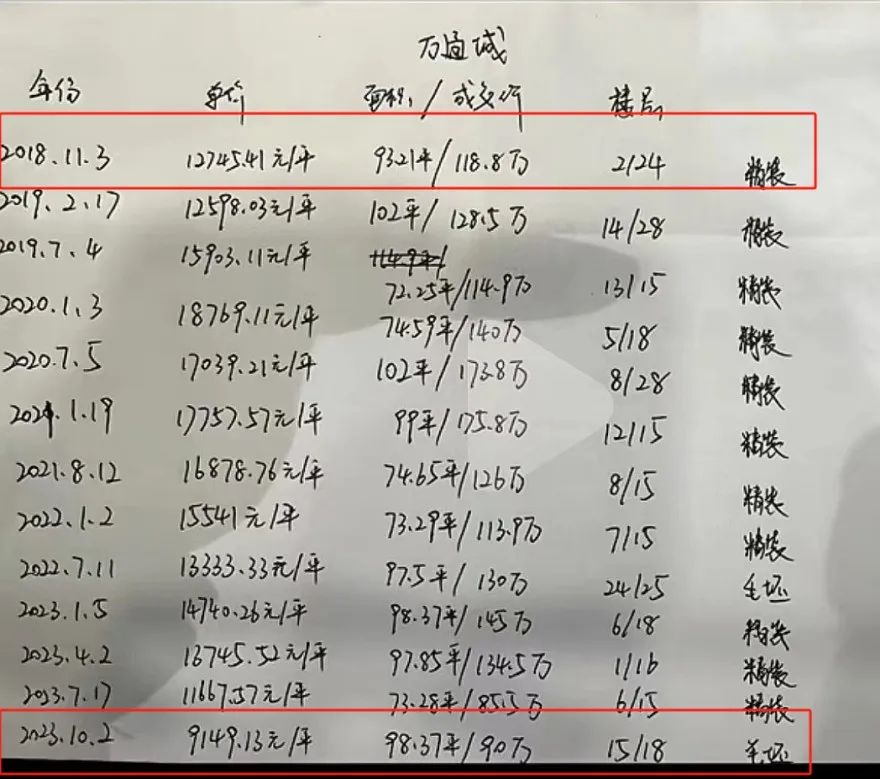 万通城
年份 单价 面积/成交价 楼层
2018.11.3 12745.41元/平 93.21平/118.8万 2/24 精装
2019.2.17 12598.03元/平 102平/128.5万 14/28 精装
2019.7.4 15903.11元/平 72.25平/114.9万 13/15 精装
2020.1.3 18769.11元/平 74.59平/140万 5/18 精装
2020.7.5 17039.21元/平 102平/173.8万 8/28 精装
2021.1.19 17757.57元/平 99平/175.8万 12/15 精装
2021.8.12 16878.76元/平 74.65平/126万 8/15 精装
2022.1.2 15541元/平 73.29平/113.9万 7/15 精装
2022.7.11 13333.33元/平 97.5平/130万 24/25 毛坯
2023.1.5 14740.26元/平 98.37平/145万 6/18 精装
2023.4.2 13745.52元/平 97.85平/134.5万 1/16 精装
2023.7.17 11667.57元/平 73.28平/85.5万 6/15 精装
2023.10.2 9149.13元/平 98.37平/90万 15/18 毛坯